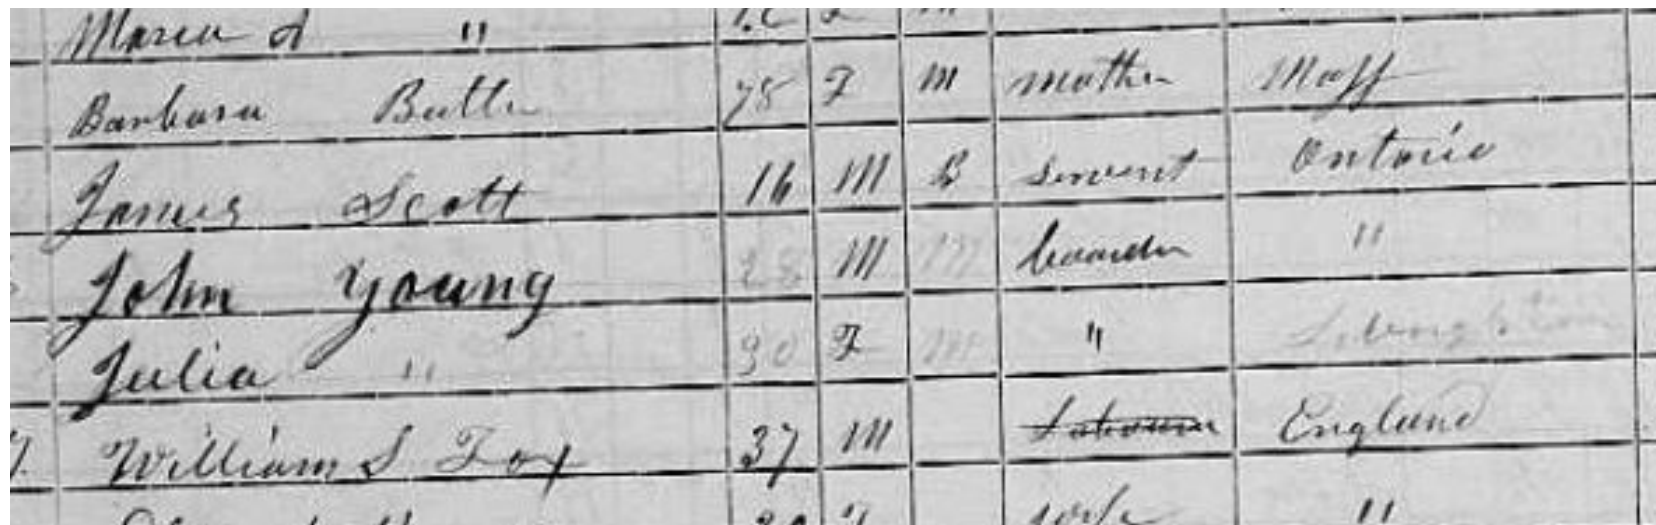 Maria A "
Barbara Butler 75 F M mother Mass
James Scott 16 M B servant Ontario
John Young 28 M M boarder "
Julia " 30 F M " Livingston
7 William S Fox 37 M Labourer England
30 F wife "